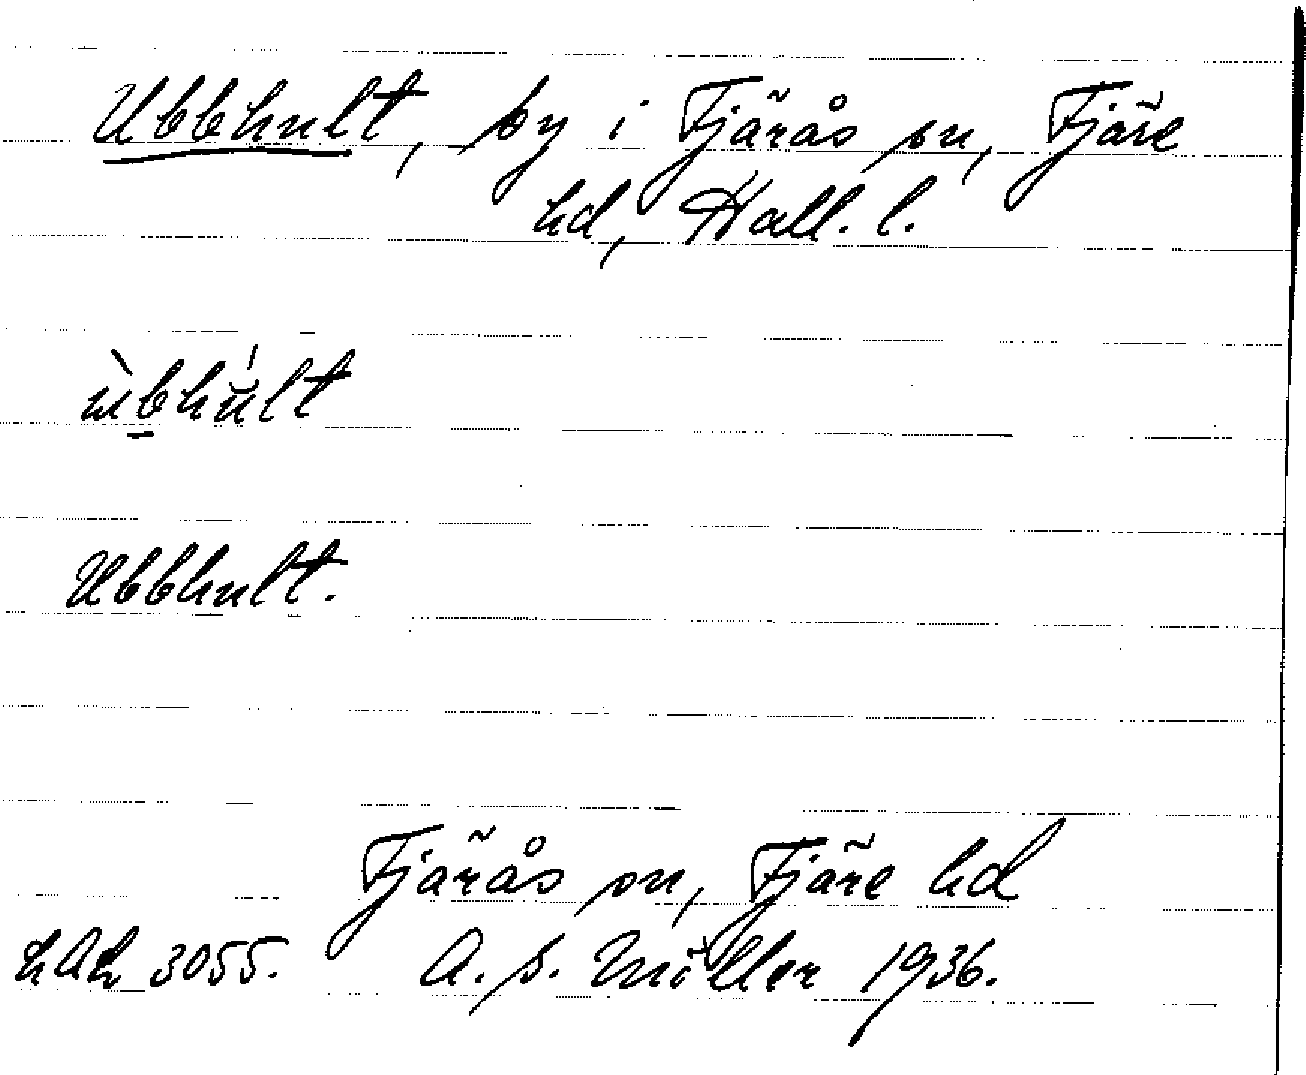 Ubbhult, by i Fjärås sn, Fjäre
hd, Hall. l.
ùbhúlt
Ubbhult.
Fjärås sn, Fjäre hd
3055. A. S. Möller 1936.